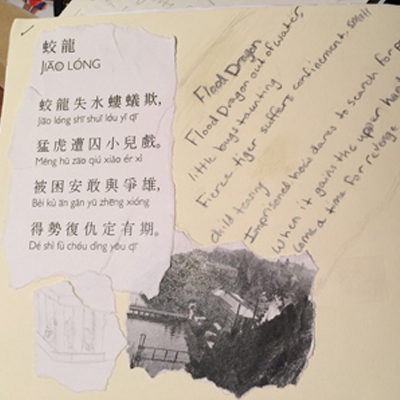 蛟龍
JIĀO LÓNG
蛟龍失水螻蟻欺,
Jiāo lóng shī shuǐ lóu yǐ qī
猛虎遭囚小兒戲。
Měng hǔ zāo qiú xiǎo ér xì
被困安敢與爭雄,
Bèi kù ān gǎn yǔ zhēng xióng
得勢復仇定有期。
Dé shì fù chóu dìng yǒu qī
Flood Dragon
Flood Dragon out of water,
little bugs taunting
Fierce tiger suffers confinement, small
child teasing
Imprisoned how dares to search for
When it gains the upper hand
come a time for revenge